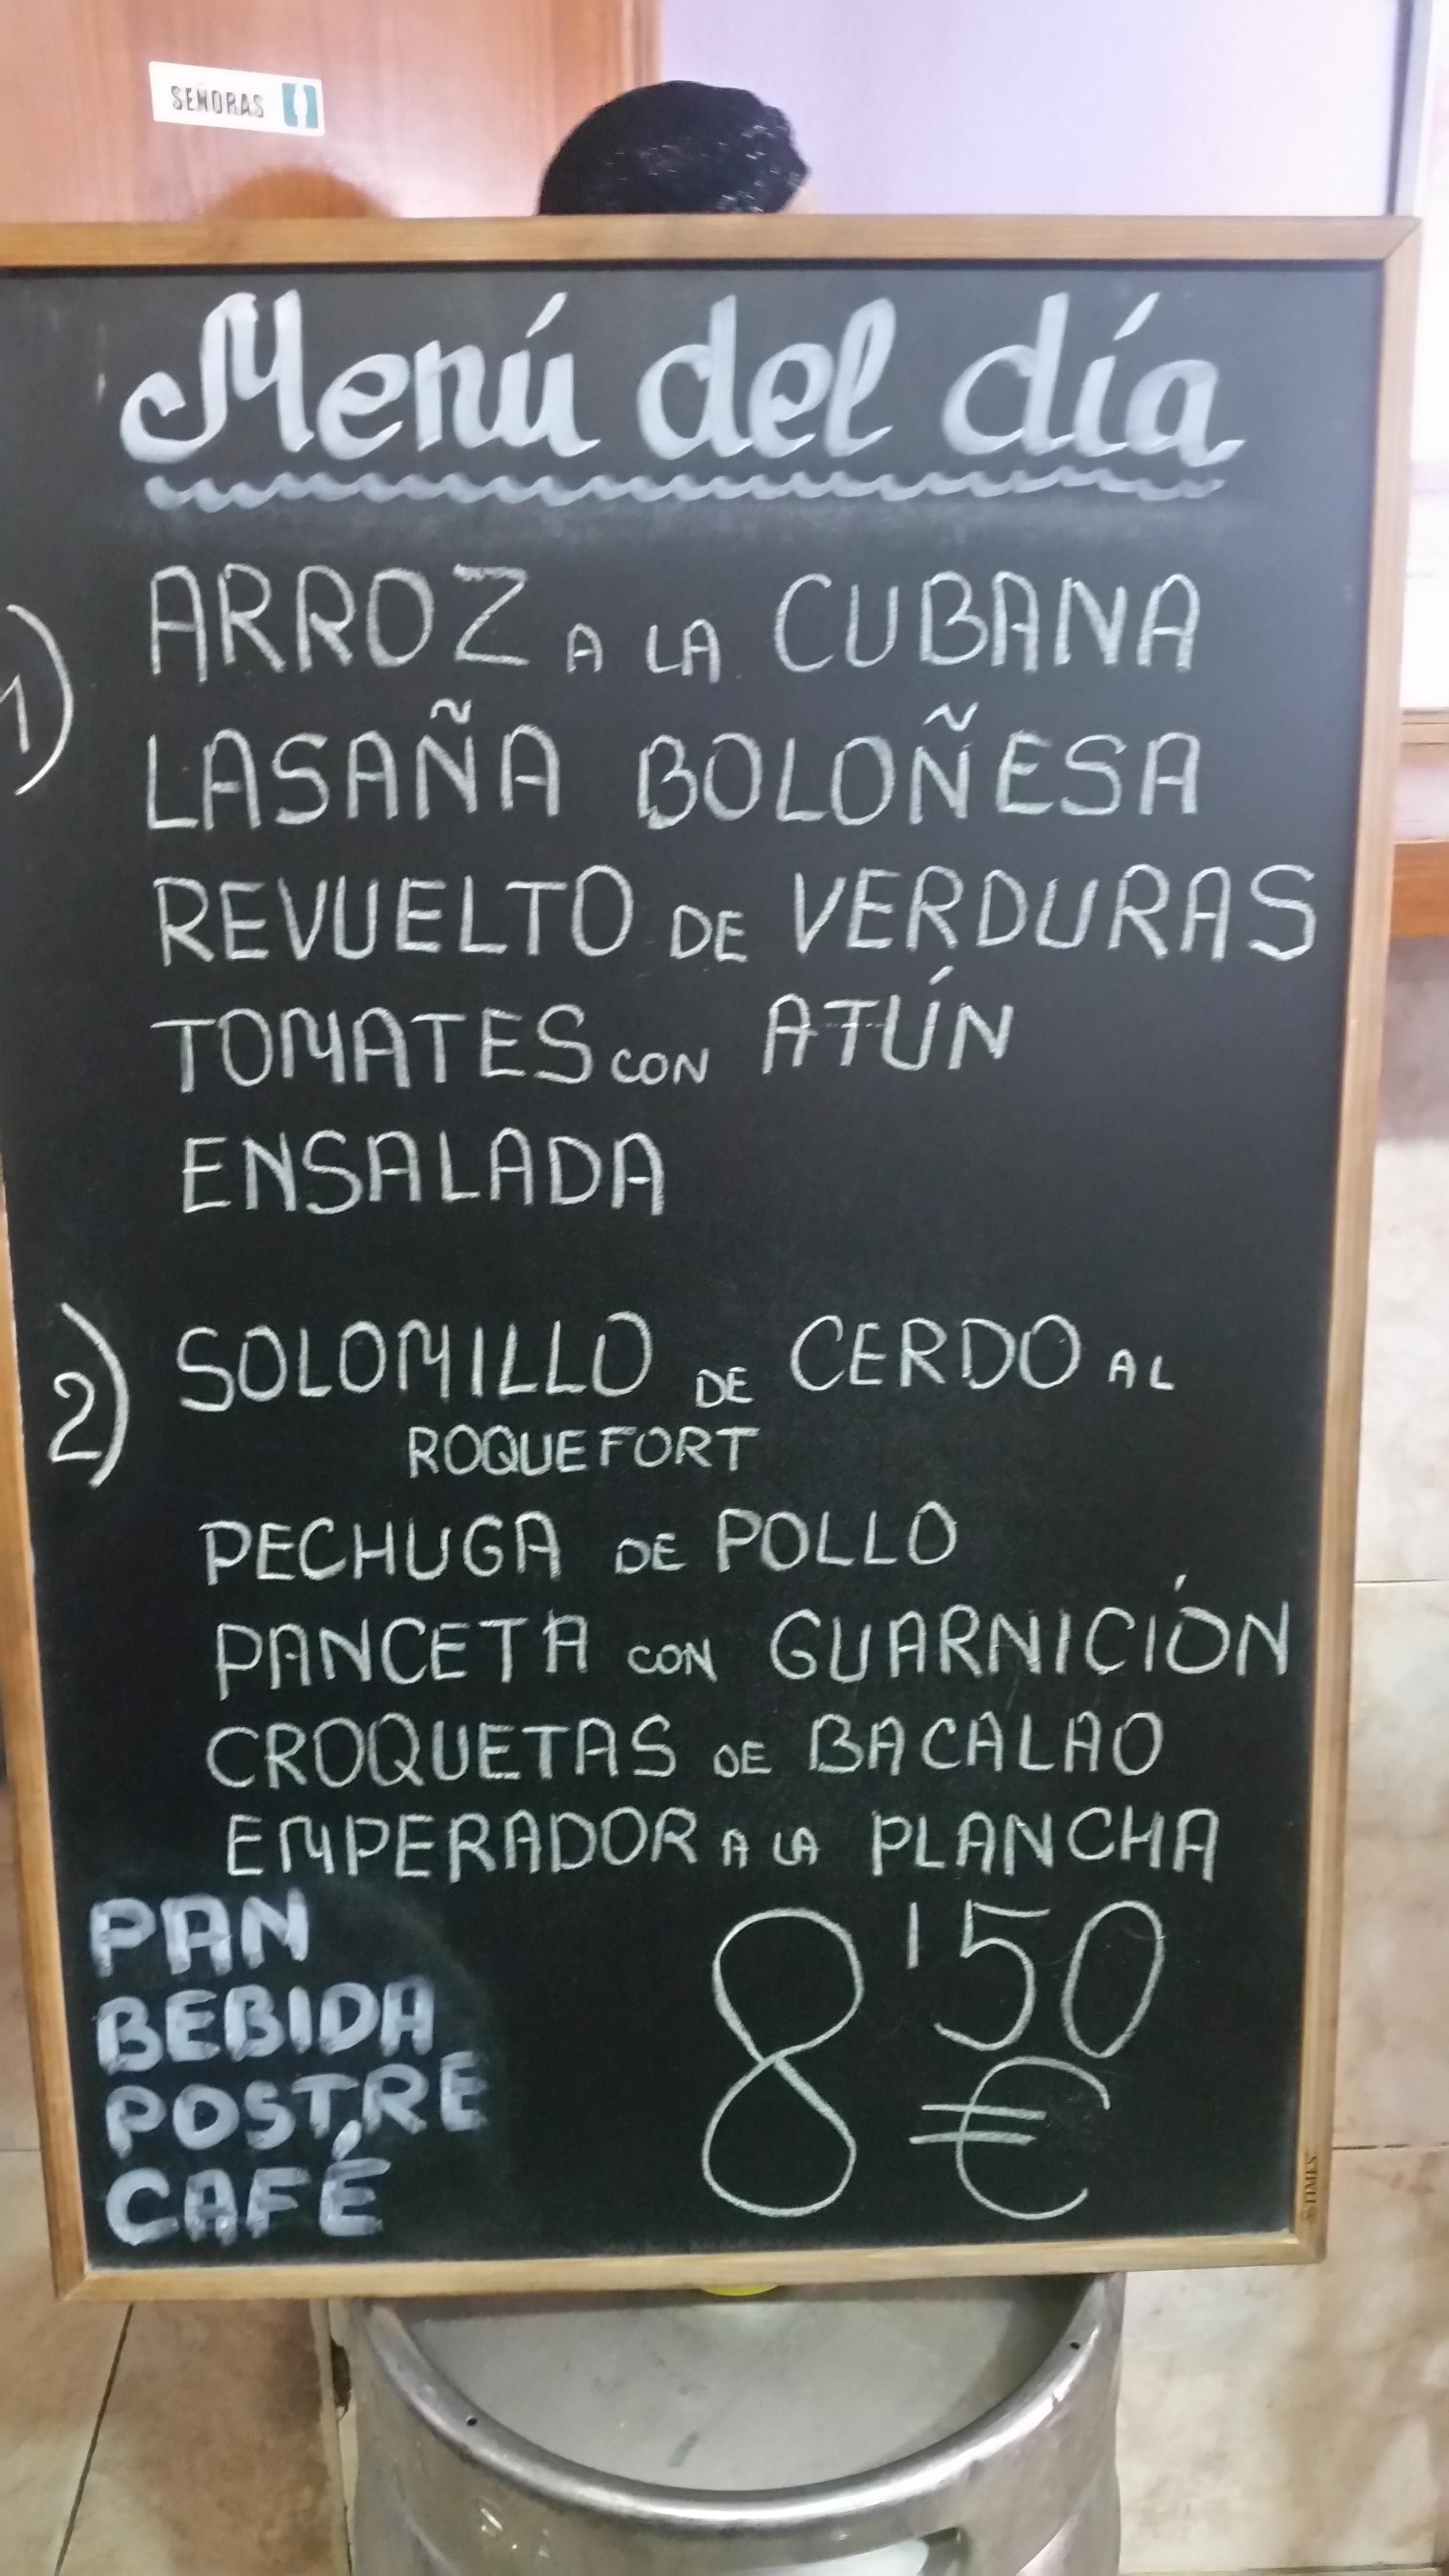 SEÑORAS
Menú del día
1) ARROZ A LA CUBANA
LASAÑA BOLOÑESA
REVUELTO DE VERDURAS
TOMATES CON ATÚN
ENSALADA
2) SOLOMILLO DE CERDO AL
ROQUEFORT
PECHUGA DE POLLO
PANCETA CON GUARNICIÓN
CROQUETAS DE BACALAO
EMPERADOR A LA PLANCHA
PAN
BEBIDA
POSTRE
CAFÉ
8'50
€
TIMES